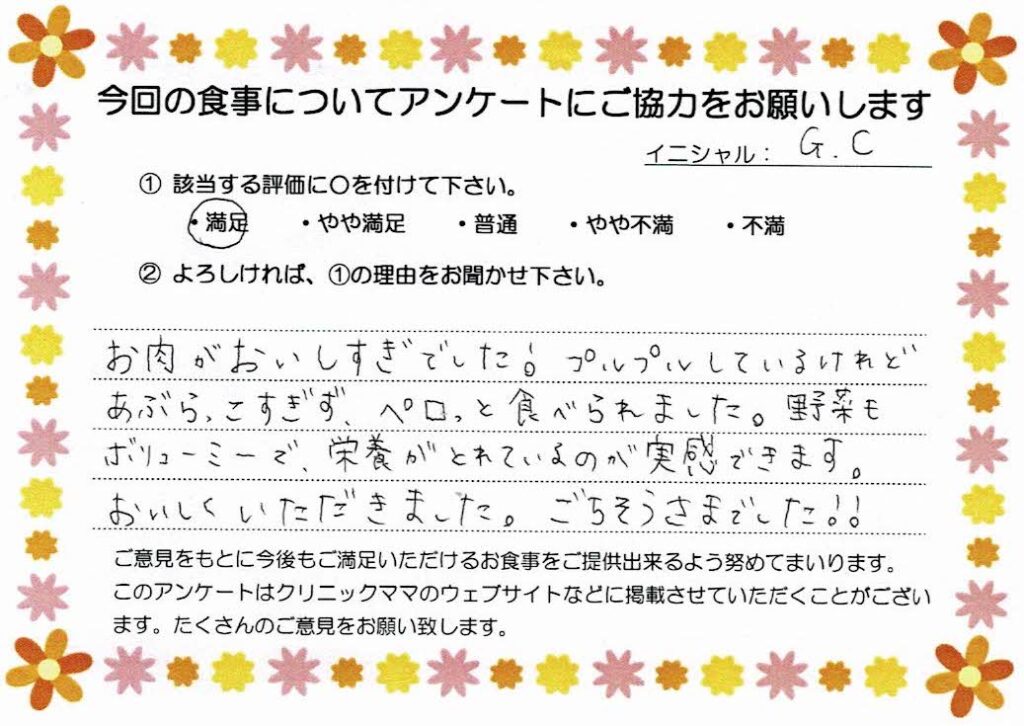 今回の食事についてアンケートにご協力をお願いします
イニシャル： G.C
① 該当する評価に〇を付けて下さい。
・満足 ・やや満足 ・普通 ・やや不満 ・不満
② よろしければ、①の理由をお聞かせ下さい。
お肉がおいしすぎでした! プルプルしているけれど
あぶらっこすぎず、ペロっと食べられました。野菜も
ボリューミーで、栄養がとれているのが実感できます。
おいしくいただきました。ごちそうさまでした!!
ご意見をもとに今後もご満足いただけるお食事をご提供出来るよう努めてまいります。
このアンケートはクリニックママのウェブサイトなどに掲載させていただくことがござい
ます。たくさんのご意見をお願い致します。